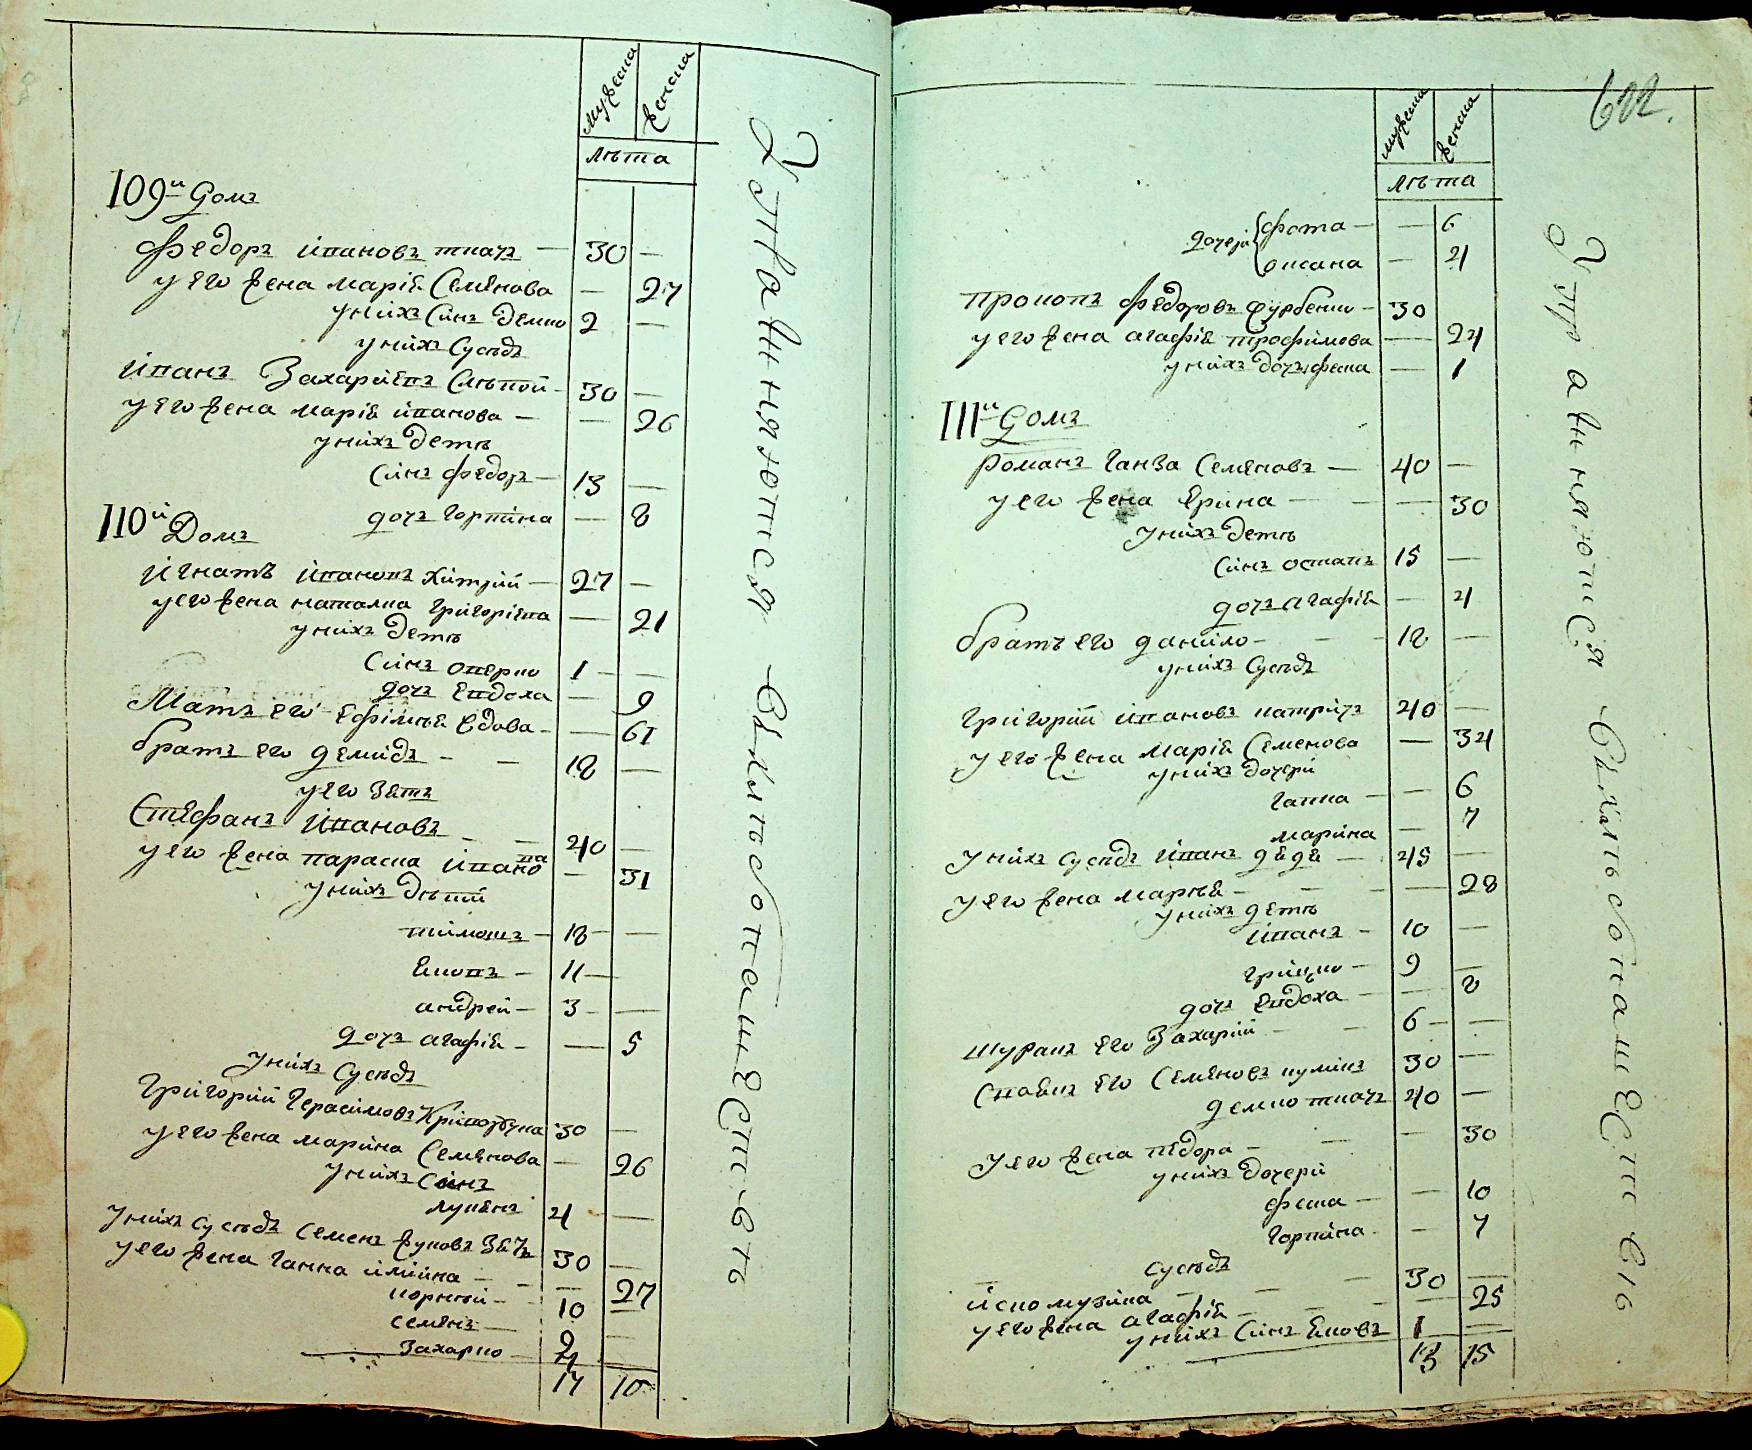 мужеска женска
лѣта
109й Домъ
Федоръ Ивановъ ткачъ — 30 —
у его жена Марія Семенова — 27
у нихъ синъ Демко 2 —
у нихъ сусѣдъ
Иванъ Захаріевъ Слѣпой — 30 —
у его жена Марія Иванова — — 26
у нихъ дети
синъ Федоръ — 13 —
дочъ Горпина — 8
110й Домъ
Игнатъ Ивановъ Хитрій — 27 —
у его жена Наталка Григоріева — 21
у нихъ дети
синъ Оверко 1 —
дочъ Евдоха — 9
Матъ его Ефимія вдова — — 61
братъ его Демидъ — — 18 —
у его зять
Стефанъ Ивановъ — — 40 —
у его жена Параска Иванова — 31
у нихъ дѣтій
Тимошъ — 18 —
Яковъ — 11 —
андрей — 3 —
дочъ агафія — — 5
у нихъ сусѣдъ
Григорій Герасимовъ 30 —
у его жена Марина Семенова — 26
у нихъ синъ
Лукянъ 4 —
у нихъ сусѣдъ Семенъ 30 —
у его жена Ганна — — 27
корнѣй — 10 —
семенъ — 9 —
Захарко — 4
17 10
Управняются въ хлѣбопашествѣ
622.
мужеска женска
лѣта
дочери Фроска — — 6
Оксана — 4
Прокопъ Федоровъ — 30
у его жена агафія трофимова — 24
у нихъ дочъ фекла — 1
111й Домъ
Романъ Ганжа Семеновъ — 40 —
у его жена Ерина — — 30
у нихъ дети
синъ остапъ 15 —
дочъ агафія — 4
братъ его данило — — 18 —
у нихъ сусѣдъ
Григорій Ивановъ 40 —
у его жена Марія Семенова — 34
у нихъ дочери
ганна — — 6
марина — 7
у нихъ сусѣдъ Иванъ — 45 —
у его жена Марія — — — 28
у нихъ дети
Иванъ — 10 —
грицко — 9 —
дочъ Евдоха — — 8
шуринъ его Захарій — — 6 —
его Семеновъ 30 —
демко ткачъ 40 —
у его жена — — — 30
у нихъ дочери
феска — — 10
Горпина — — 7
сусѣдъ
30 —
у его жена агафія — — — 25
у нихъ синъ Яковъ 1 —
13 15
Управняются въ хлѣбопашествѣ